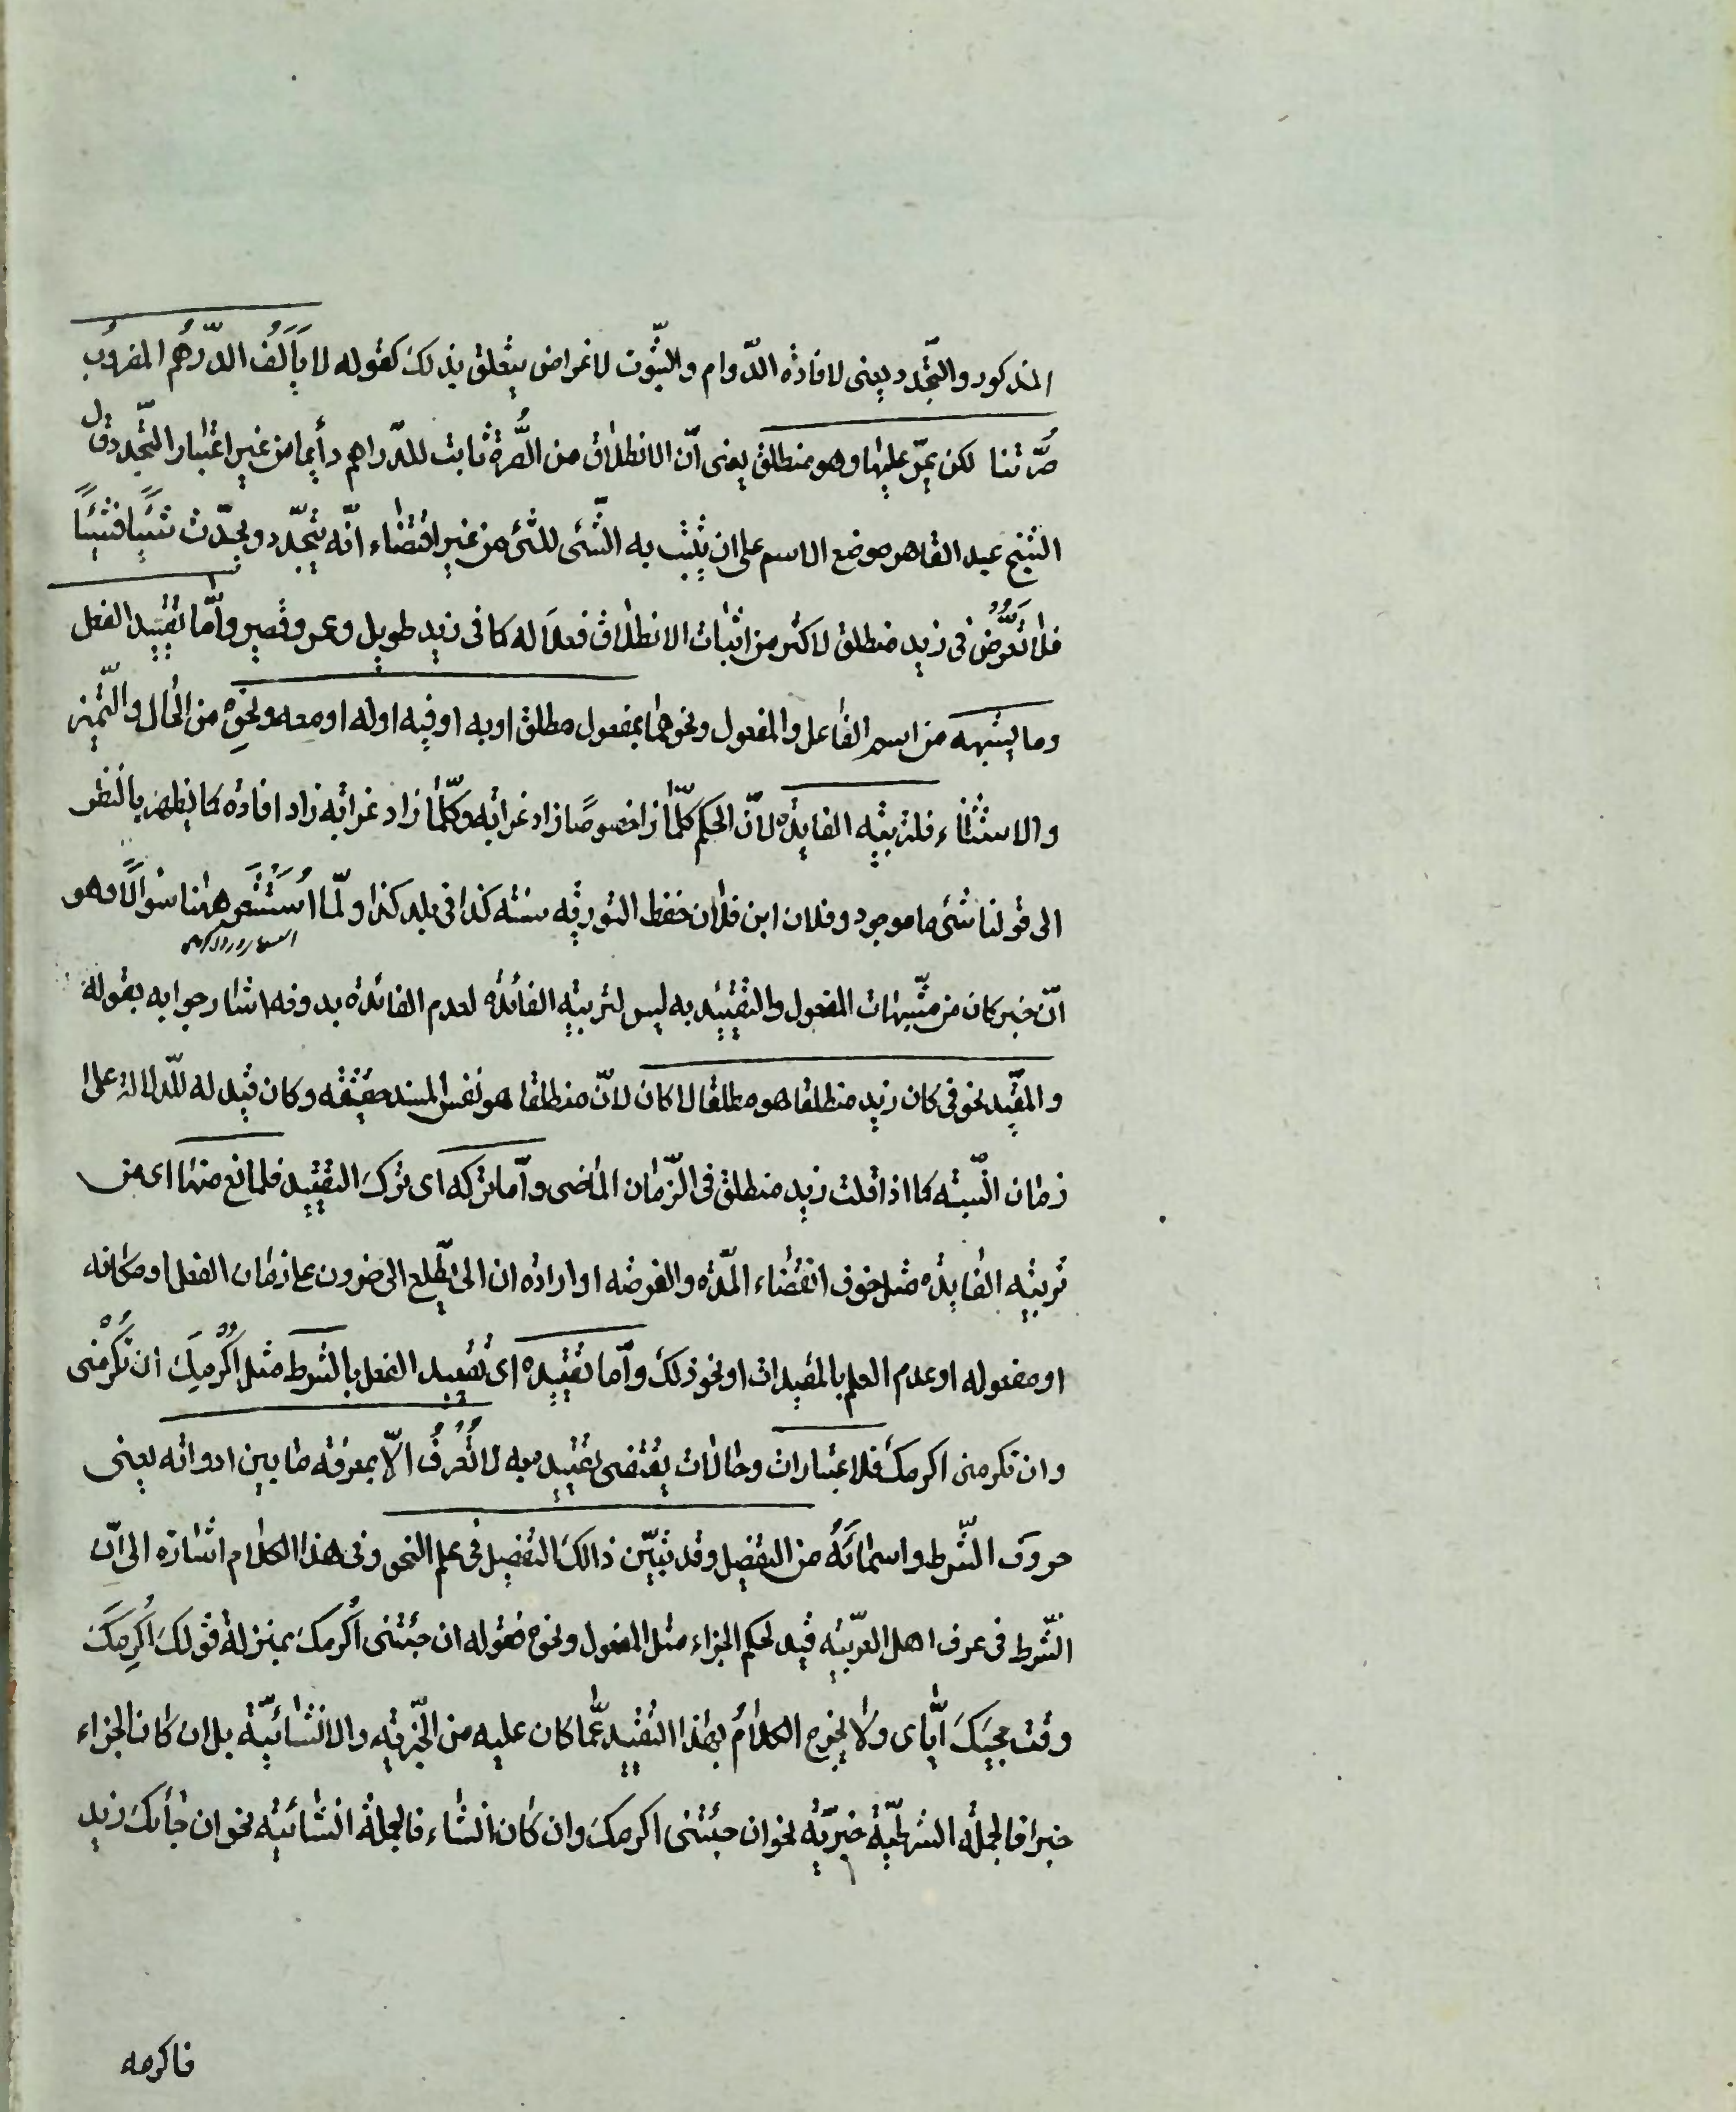 المذكور والتّجدد يعنى لافادة الدّوام والثّبوت لاغراض يتعلق بذلك كقوله لا يَألَفُ الدّرهُم المضروُب
صُرّتنا لكن يمرّ عليها وهو منطلق يعنى أنّ الانطلاق من الصُّرة ثابت للدّراهم دأيما من غير اعتبار التّجدد قال
الشيخ عبد القاهر موضع الاسم على ان يثبت به الشّئ للشئ من غير اقتضاء انّه يتجّدد ويحدّث شيًئا فشيئًا
فلا تَعرُّضُ فى زيد منطلق لاكثر من اثبات الانطلاق فعلاَ له كما فى زيد طويل وعمرو قصير وأمّا تقييد الفعل
وما يشبهه من اسم الفاعل والمفعول ونحوهما بمفعول مطلق او به او فيه اوله او معه ونحوِه من الحال والتّميز
والاستثناء فلتربيته الفايدة لانّ الحكم كلّما زاد خصوصًا زاد غرابه وكلّما زاد غرابه زاد افاده كما يظهر بالنظر
الى قولنا شئ ما موجود وفلان ابن فلان حفظ التوريه سنته كذا فى بلد كذا ولمّا اُسْتُشْعِر ههنا سُوالًا وهو
انّ خبر كان من مشّبهات المفعول والتقييد به ليس لتربيته الفائدة لعدم الفائدة بدونه اشار جوابه بقوله
والمقّيد نحو فى كان زيد منطلقا هو مطلقا لا كان لانّ منطلقا هو نفس المسند حقيقه وكان قيد له للّدلالة على
زمان النّسبته كما اذا قلت زيد منطلق فى الزّمان الماضى وأمّا تركه اى تركَ التقييد فلمانع منها اى من
تربيته الفايدة مثل خوف انقضاء المّدة والفرصه او ارادة ان الى يطّلع الى ضرون على زمان الفعل او مكانه
او مفعوله او عدم العلم بالمقيدات او نحو ذلك وأمّا تقييده اى تقييد الفعل بالشرط مثل اُكْرِمُكَ ان تُكْرِمْنى
وان تكرمنى اكرمكَ فلاعتبارات وحالات يقتضى تقييده به لا تُعْرفُ الاّ بمعرفة ما بين ادواته يعنى
حروَف الشّرط واسمائَهُ من التفضيل وقد بيّن ذالكَ التفضيل فى علم النحو وفى هذا الكلام اشارة الى انّ
الشّرط فى عرف اهل العربيّه قيد لحكم الجزاء مثل المفعول ونحوه فقوله ان جئتنى اُكرمكَ بمنزلة قولكَ اُكرِمكَ
وقت مجيئكَ اّياى ولا يخرج الكلامُ بهذا التقييد عّما كان عليه من الخبرّيه والانشائيّة بل ان كان الجزاء
خبرا فالجملُه الشرطيّة خبريّة نحو ان جئتنى اكرمكَ وان كان انشاء فالجملة انشائيّه نحو ان جأكَ زيد
فاكرمه